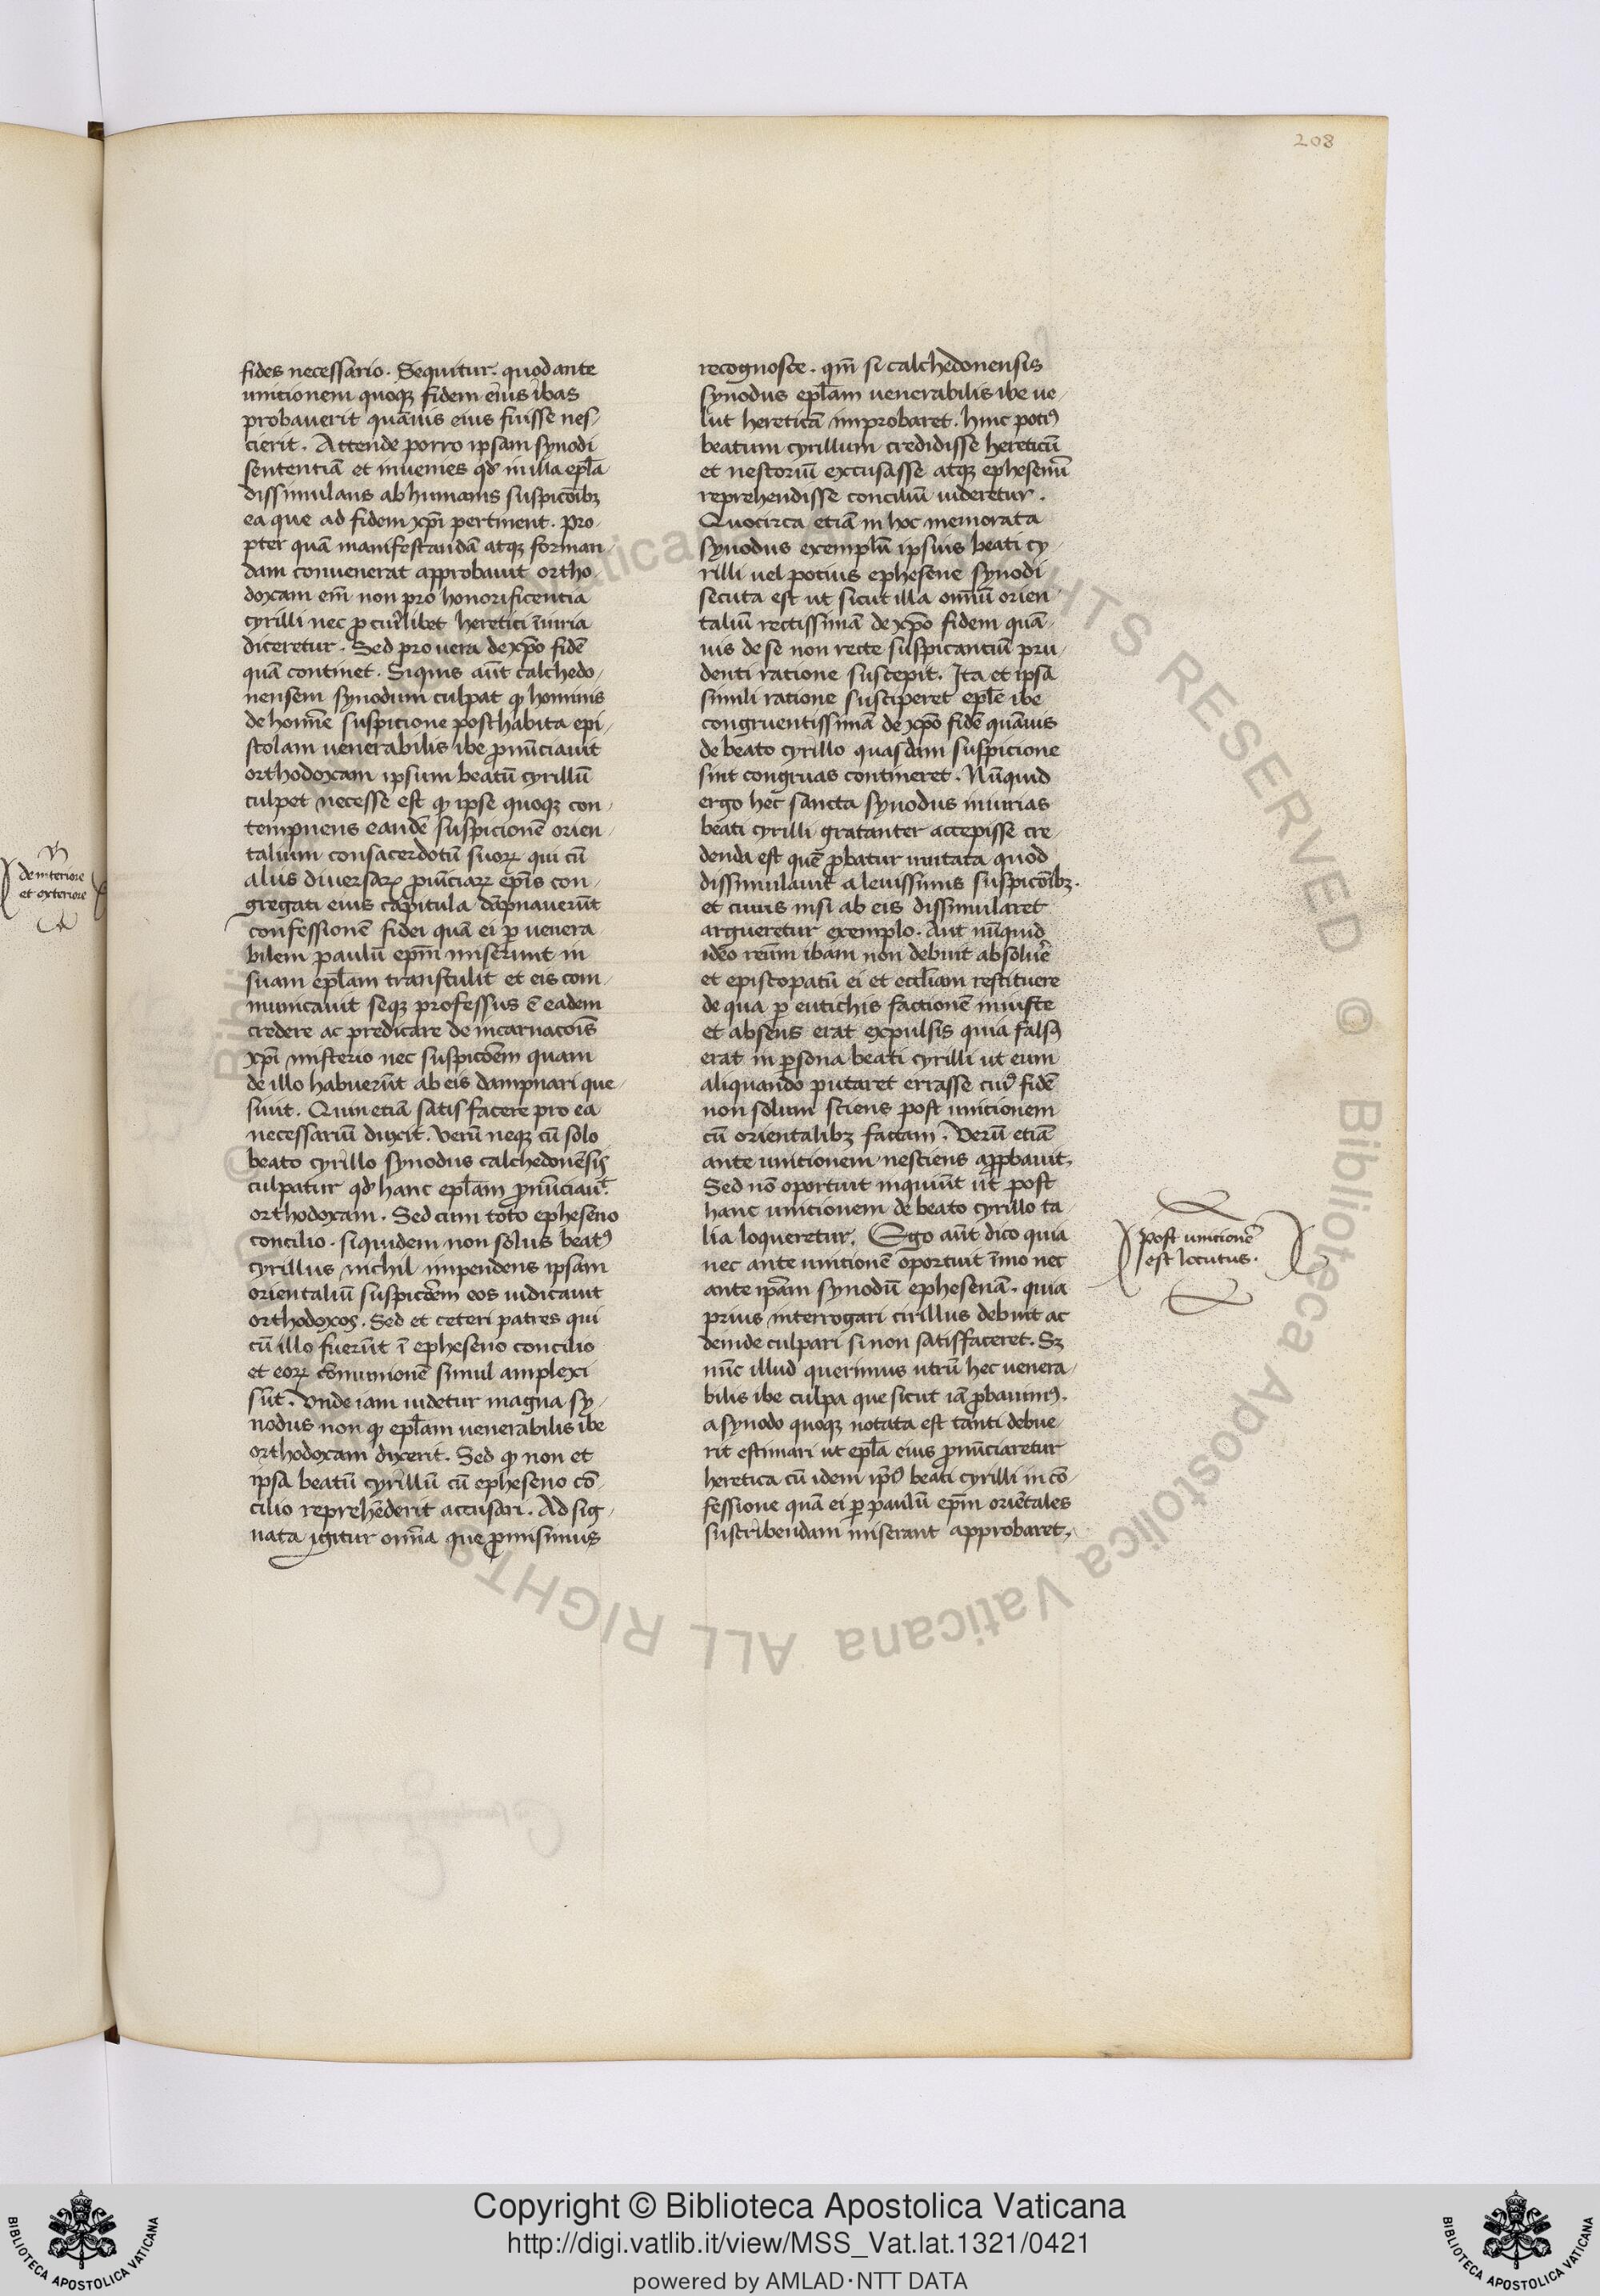 208
fides necessario. Sequitur. quod ante
unitionem quoqꝫ fidem eiꝰ ibas
probauerit quāuis eius fuisse nes-
cierit. Attende porro ipsam synodi
sententiā et inuenies qd' in illa epl̄a
dissimulans ab humanis suspicōibꝫ
ea que ad fidem xp̄i pertinent. Pro-
pter quā manifestandā atqꝫ forman-
dam convenerat approbauit ortho-
doxam em̄ non pro honorificentia
cyrilli nec ꝓ cuiꝰlibet heretici īiuria
diceretur. Sed pro uera de xp̄o fidē
quā continet. Siquis aūt calchedo-
nensem synodum culpat ꝙ hominis
de homīe suspicione posthabita epi-
stolam uenerabilis ibe ꝓnūciauit
orthodoxam ipsum beatū cyrillū
culpet necesse est ꝙ ipse quoqꝫ con-
tempnens eandē suspicionē orien-
talium consacerdotū suoꝝ qui cū
aliis diuersaꝝ ꝓuīciaꝝ ep̄is con-
gregati eius capitula dāpnauerūt
confessionē fidei quā ei ꝑ uenera-
bilem paulū ep̄m miserunt in
suam epl̄am transtulit et eis com-
municauit seqꝫ professus ē eadem
credere ac predicare de incarnacōis
xp̄i misterio nec suspicōem quam
de illo habuerūt ab eis dampnari que-
siuit. Quin etiā satisfacere pro ea
necessariū duxit. Verū neqꝫ cū solo
beato cyrillo synodus calchedonēsis
culpatur qd' hanc epl̄am ꝓnūciauit
orthodoxam. Sed cum toto epheseno
concilio. siquidem non solus beatꝰ
cyrillus nichil impendens ipsam
orientaliū suspicōem eos iudicauit
orthodoxos. Sed et ceteri patres qui
cū illo fuerūt ī epheseno concilio
et eoꝝ cōmunionē simul amplexi
sūt. Vnde iam uidetur magna sy-
nodus non ꝙ epl̄am uenerabilis ibe
orthodoxam dixerit. Sed ꝙ non et
ipsa beatū cyrillū cū epheseno cō-
cilio reprehēderit accusari. Ad sig-
nata igitur om̄ia que ꝓmisimus
recognosce. qm̄ si calchedonensis
synodus epl̄am uenerabilis ibe ue-
lut hereticā improbaret. hinc potiꝰ
beatum cyrillum credidisse hereticū
et nestoriū excusasse atqꝫ ephesenū
reprehendisse conciliū uideretur.
Quocirca etiā in hoc memorata
synodus exemplū ipsius beati cy-
rilli uel potius ephesene synodi
secuta est ut sicut illa om̄iū orien-
taliū rectissimā de xp̄o fidem quā-
uis de se non recte suspicantiū pru-
denti ratione suscepit. Ita et ipsa
simili ratione susciperet epl̄e ibe
congruentissimā de xp̄o fidē quāuis
de beato cyrillo quasdam suspicione
sint congruas contineret. Nūquid
ergo hec sancta synodus iniurias
beati cyrilli gratanter accepisse cre-
denda est quē ꝓbatur imitata quod
dissimulauit a leuissimis suspicōibꝫ.
et cuius nisi ab eis dissimularet
argueretur exemplo. Aut nūquid
ideo reum ibam non debuit absoluere
et episcopatū ei et eccl̄iam restituere
de qua ꝑ eutichis factionē iniuste
et absens erat expulsis quia falsꝰ
erat in ꝑsona beati cyrilli ut eum
aliquando putaret errasse cuiꝰ fidē
non solum sciens post unitionem
cū orientalibꝫ factam. Verū etiā
ante unitionem nesciens apꝓbauit.
Sed nō oportuit inquiūt ut post
hanc unitionem de beato cyrillo ta-
lia loqueretur. Ego aūt dico quia
nec ante unitionē oportuit īmo nec
ante ip̄am synodū ephesenā. quia
prius interrogari cirillus debuit ac
deinde culpari si non satisfaceret. Sꝫ
nūc illud querimus utrū hec uenera-
bilis ibe culpa que sicut iā ꝓbauimꝰ.
a synodo quoqꝫ notata est tanti debue-
rit estimari ut epl̄a eius ꝓnūciaretur
heretica cū idem ip̄iꝰ beati cyrilli in cō-
fessione quā ei ꝑ paulū ep̄m oriētales
suscribendam miserant approbaret.
de interiore
et exteriore
post unitionē
est locutus.
© Biblioteca Apostolica Vaticana ALL RIGHTS RESERVED
Copyright © Biblioteca Apostolica Vaticana
http://digi.vatlib.it/view/MSS_Vat.lat.1321/0421
powered by AMLAD·NTT DATA
BIBLIOTECA APOSTOLICA VATICANA
BIBLIOTECA APOSTOLICA VATICANA